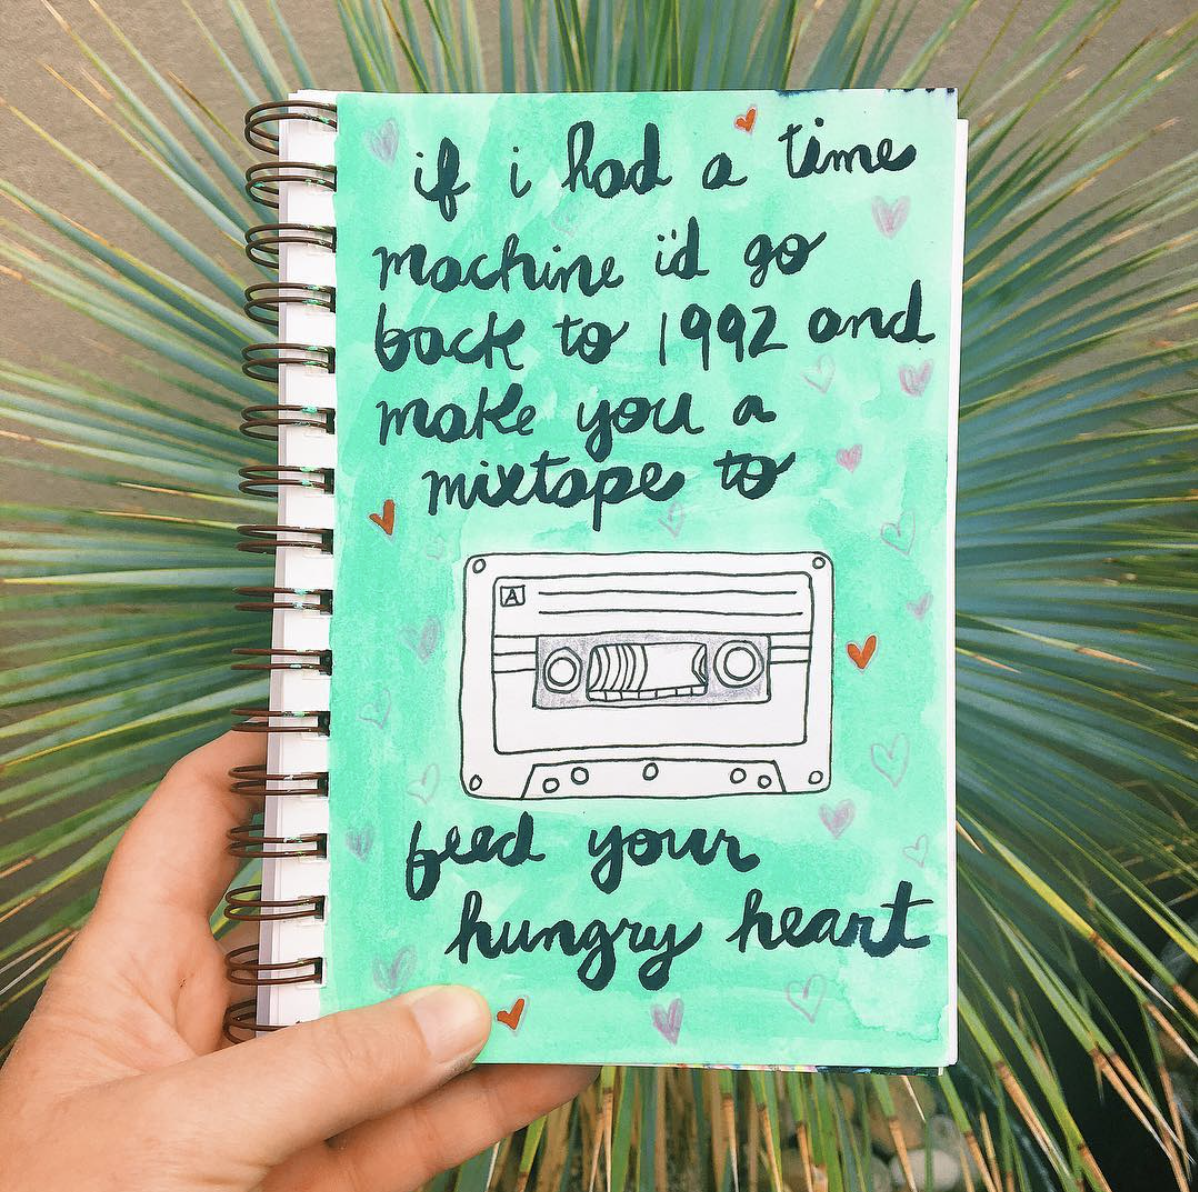 if i had a time
machine i'd go
back to 1992 and
make you a
mixtape to
A
feed your
hungry heart